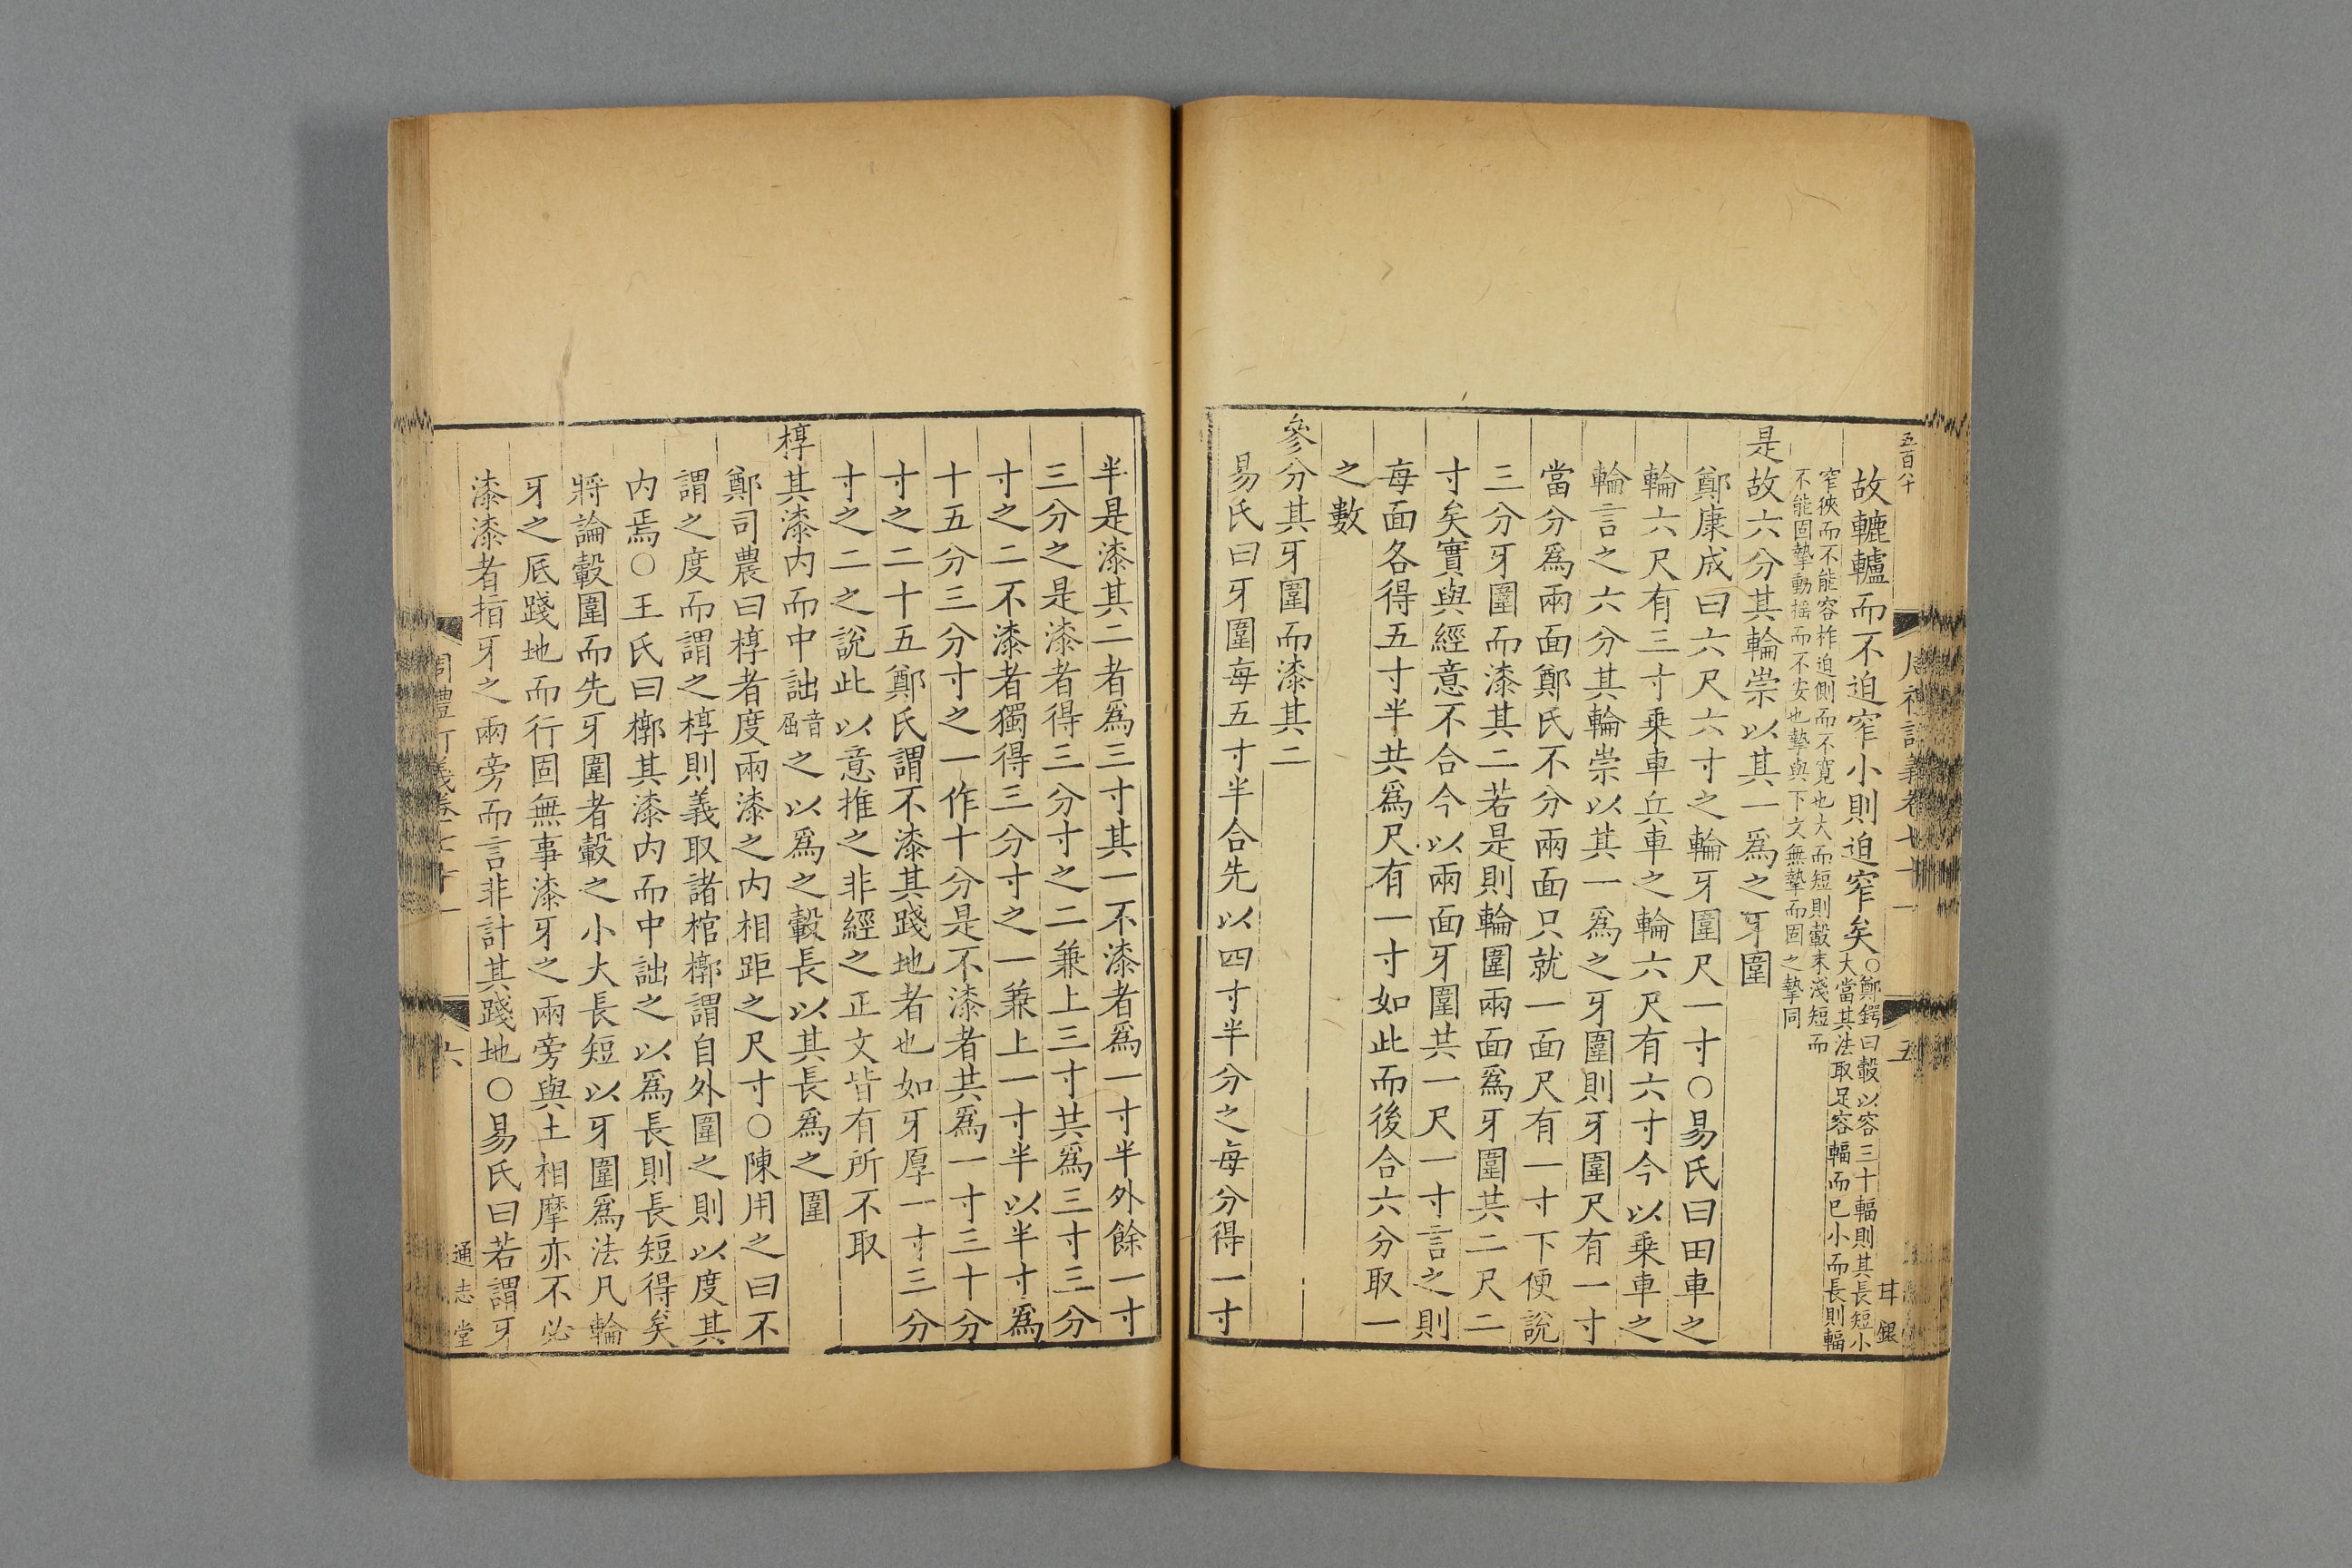 五百八十
故轆轤而不迫窄小則迫窄矣○鄭鍔曰轂以容三十輻則其長短小
大當其法取足容輻而已小而長則輻
窄狹而不能容柞迫側而不寬也大而短則轂末淺短而
不能固摯動搖而不安也摯與下文無摯而固之摯同
是故六分其輪崇以其一爲之牙圍
鄭康成曰六尺六寸之輪牙圍尺一寸○易氏曰田車之
輪六尺有三寸乗車兵車之輪六尺有六寸今以乗車之
輪言之六分其輪崇以其一爲之牙圍則牙圍尺有一寸
當分爲兩面鄭氏不分兩面只就一面尺有一寸下便說
三分牙圍而漆其二若是則輪圍兩面爲牙圍共二尺二
寸矣實與經意不合今以兩面牙圍共一尺一寸言之則
每面各得五寸半共爲尺有一寸如此而後合六分取一
之數
參分其牙圍而漆其二
易氏曰牙圍每五寸半合先以四寸半分之每分得一寸
半是漆其二者爲三寸其一不漆者爲一寸半外餘一寸
三分之是漆者得三分寸之二兼上三寸共爲三寸三分
寸之二不漆者獨得三分寸之一兼上一寸半以半寸爲
十五分三分寸之一作十分是不漆者共爲一寸三十分
寸之二十五鄭氏謂不漆其踐地者也如牙厚一寸三分
寸之二之說此以意推之非經之正文皆有所不取
椁其漆内而中詘音屈之以爲之轂長以其長爲之圍
鄭司農曰椁者度兩漆之内相距之尺寸○陳用之曰不
謂之度而謂之椁則義取諸棺槨謂自外圍之則以度其
内焉○王氏曰槨其漆内而中詘之以爲長則長短得矣
將論轂圍而先牙圍者轂之小大長短以牙圍爲法凡輪
牙之厎踐地而行固無事漆牙之兩旁與土相摩亦不必
漆漆者指牙之兩旁而言非計其踐地○易氏曰若謂牙
六
通志堂